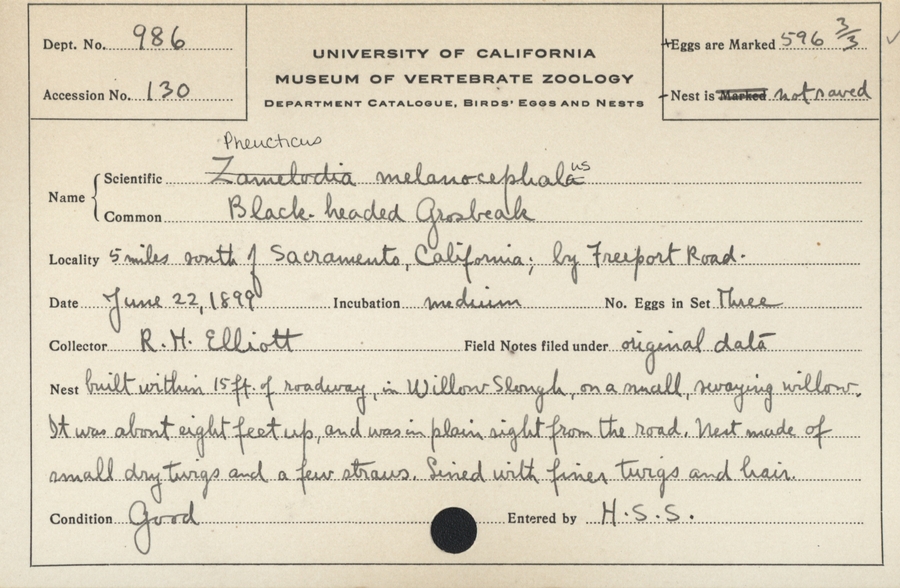 Dept. No. 986
Accession No. 130
UNIVERSITY OF CALIFORNIA
MUSEUM OF VERTEBRATE ZOOLOGY
DEPARTMENT CATALOGUE, BIRDS' EGGS AND NESTS
Eggs are Marked 596 3/3
Nest is Marked not saved
Pheucticus
Name Scientific Zamelodia melanocephala us
Common Black-headed Grosbeak
Locality 5 miles south of Sacramento, California; by Freeport Road.
Date June 22, 1899 Incubation medium No. Eggs in Set Three
Collector R. H. Elliott Field Notes filed under original data
Nest built within 15 ft. of roadway, in Willow Slough, on a small, swaying willow.
It was about eight feet up, and was in plain sight from the road. Nest made of
small dry twigs and a few straws. Lined with finer twigs and hair.
Condition Good Entered by H.S.S.